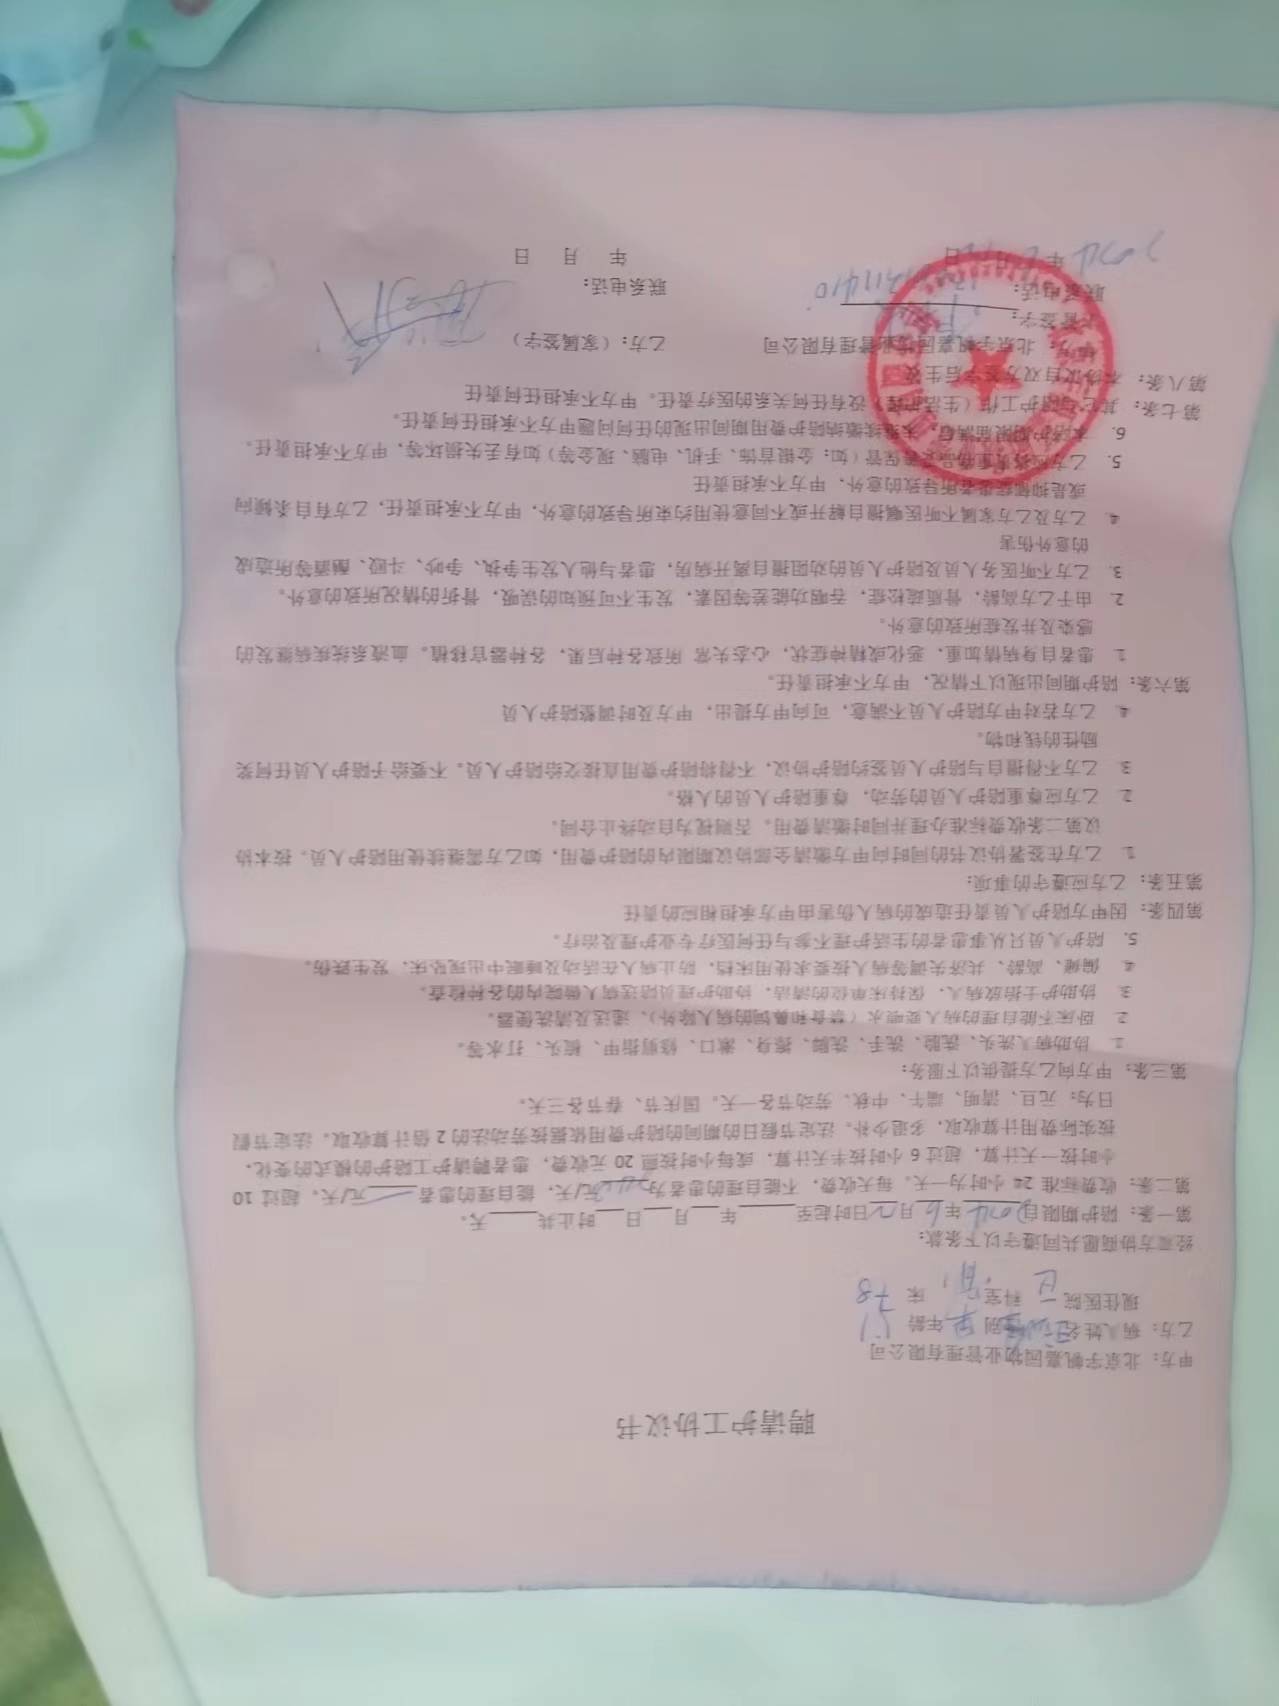 聘请护工协议书
甲方：北京宇帆嘉园物业管理有限公司
乙方：病人姓名 性别 年龄
现住医院 科室 床 78
经双方协商愿共同遵守以下条款：
第一条：陪护期限自2024年6月 日时起至 年 月 日 时止共 天。
第二条：收费标准 24 小时为一天。每天收费，不能自理的患者为 元/天，能自理的患者 元/天，超过 10
小时按一天计算，超过 6 小时按半天计算，或每小时按照 20 元收费，患者聘请护工陪护的模式的变化，
按实际费用计算收取，多退少补。法定节假日的期间的陪护费用依据按劳动法的 2 倍计算收取。法定节假
日为：元旦、清明、端午、中秋、劳动节各一天。国庆节、春节各三天。
第三条：甲方向乙方提供以下服务：
1. 协助病人洗头、洗脸、洗手、洗脚、擦身、漱口、修剪指甲、梳头、打水等。
2. 卧床不能自理的病人要喂水（禁食和鼻饲的病人除外），递送及清洗便器。
3. 协助护士招放病人，保持床单位的清洁，协助护理员陪送病人做院内的各种检查。
4. 偏瘫、高龄、共济失调等病人按要求使用床档，防止病人在活动及睡眠中出现坠床，发生跌伤。
5. 陪护人员只从事患者的生活护理不参与任何医疗专业护理及治疗。
第四条：因甲方陪护人员责任造成的病人伤害由甲方承担相应的责任
第五条：乙方应遵守的事项：
1. 乙方在签署协议书的同时向甲方缴清全部协议期限内的陪护费用，如乙方需继续使用陪护人员。按本协
议第二条收费标准办理并同时缴清费用。否则视为自动终止合同。
2. 乙方应尊重陪护人员的劳动，尊重陪护人员的人格。
3. 乙方不得擅自与陪护人员签约陪护协议，不得将陪护费用直接交给陪护人员。不要给予陪护人员任何奖
励性的钱和物。
4. 乙方若对甲方陪护人员不满意，可向甲方提出，甲方及时调整陪护人员
第六条：陪护期间出现以下情况，甲方不承担责任。
1. 患者自身病情加重，恶化或精神症状，心态失常 所致各种后果，各种器官移植。血液系统疾病继发的
感染及并发症所致的意外。
2. 由于乙方高龄，骨质疏松症，吞咽功能差等因素，发生不可预知的误吸，骨折的情况所致的意外。
3. 乙方不听医务人员及陪护人员的劝阻擅自离开病房，患者与他人发生争执、争吵、斗殴、酗酒等所造成
的意外伤害
4. 乙方及乙方家属不听医嘱擅自解开或不同意使用约束所导致的意外，甲方不承担责任，乙方有自杀倾向
或是抑郁症患者所导致的意外，甲方不承担责任
5. 乙方应将贵重物品妥善保管（如：金银首饰、手机、电脑、现金等）如有丢失损坏等，甲方不承担责任。
6. 本陪护期限届满后，未继续缴纳陪护费用期间出现的任何问题甲方不承担任何责任。
第七条：其它与陪护工作（生活护理）没有任何关系的医疗责任。甲方不承担任何责任
第八条：本协议自双方签字后生效
甲方：北京宇帆嘉园物业管理有限公司 乙方：（家属签字）
主管签字：
联系电话： 联系电话：
2024年 月 日 年 月 日